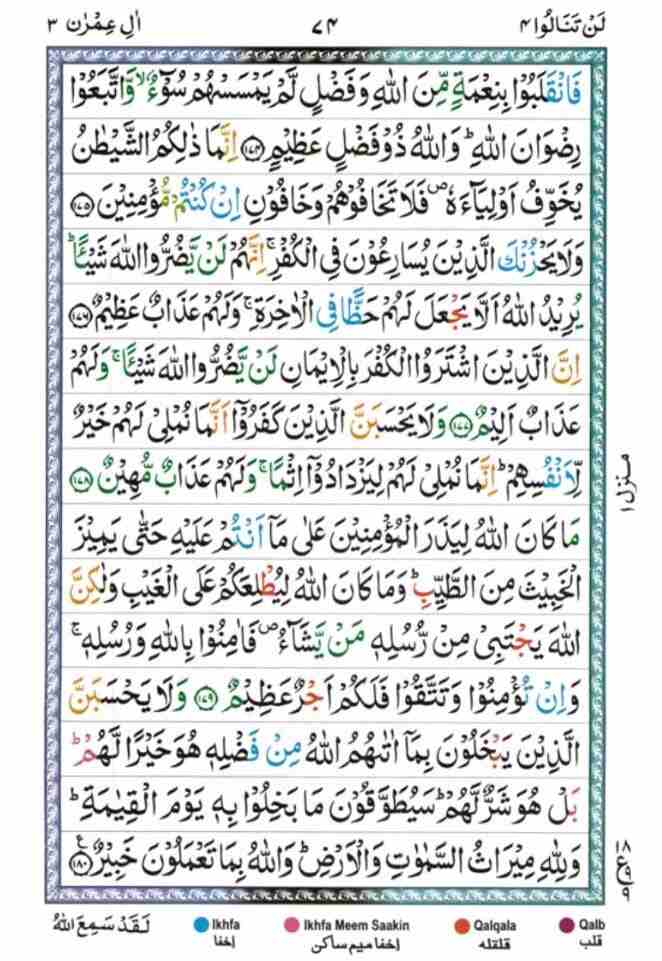 لَنْ تَنَالُوا ٤
٧٤
اٰلِ عِمْرٰن ٣
فَانْقَلَبُوْا بِنِعْمَةٍ مِّنَ اللّٰهِ وَفَضْلٍ لَّمْ يَمْسَسْهُمْ سُوْٓءٌ ۙ وَّاتَّبَعُوْا
رِضْوَانَ اللّٰهِ ؕ وَاللّٰهُ ذُوْ فَضْلٍ عَظِيْمٍ ﴿١٧٤﴾ اِنَّمَا ذٰلِكُمُ الشَّيْطٰنُ
يُخَوِّفُ اَوْلِيَآءَهٗ ۪ فَلَا تَخَافُوْهُمْ وَخَافُوْنِ اِنْ كُنْتُمْ مُّؤْمِنِيْنَ ﴿١٧٥﴾
وَلَا يَحْزُنْكَ الَّذِيْنَ يُسَارِعُوْنَ فِى الْكُفْرِ ۚ اِنَّهُمْ لَنْ يَّضُرُّوا اللّٰهَ شَيْـًٔا ؕ
يُرِيْدُ اللّٰهُ اَلَّا يَجْعَلَ لَهُمْ حَظًّا فِى الْاٰخِرَةِ ۚ وَلَهُمْ عَذَابٌ عَظِيْمٌ ﴿١٧٦﴾
اِنَّ الَّذِيْنَ اشْتَرَوُا الْكُفْرَ بِالْاِيْمَانِ لَنْ يَّضُرُّوا اللّٰهَ شَيْـًٔا ۚ وَلَهُمْ
عَذَابٌ اَلِيْمٌ ﴿١٧٧﴾ وَلَا يَحْسَبَنَّ الَّذِيْنَ كَفَرُوْٓا اَنَّمَا نُمْلِىْ لَهُمْ خَيْرٌ
لِّاَنْفُسِهِمْ ؕ اِنَّمَا نُمْلِىْ لَهُمْ لِيَزْدَادُوْٓا اِثْمًا ۚ وَلَهُمْ عَذَابٌ مُّهِيْنٌ ﴿١٧٨﴾
مَا كَانَ اللّٰهُ لِيَذَرَ الْمُؤْمِنِيْنَ عَلٰى مَآ اَنْتُمْ عَلَيْهِ حَتّٰى يَمِيْزَ
الْخَبِيْثَ مِنَ الطَّيِّبِ ؕ وَمَا كَانَ اللّٰهُ لِيُطْلِعَكُمْ عَلَى الْغَيْبِ وَلٰكِنَّ
اللّٰهَ يَجْتَبِىْ مِنْ رُّسُلِهٖ مَنْ يَّشَآءُ ۪ فَاٰمِنُوْا بِاللّٰهِ وَرُسُلِهٖ ۚ
وَاِنْ تُؤْمِنُوْا وَتَتَّقُوْا فَلَكُمْ اَجْرٌ عَظِيْمٌ ﴿١٧٩﴾ وَلَا يَحْسَبَنَّ
الَّذِيْنَ يَبْخَلُوْنَ بِمَآ اٰتٰىهُمُ اللّٰهُ مِنْ فَضْلِهٖ هُوَ خَيْرًا لَّهُمْ ؕ
بَلْ هُوَ شَرٌّ لَّهُمْ ؕ سَيُطَوَّقُوْنَ مَا بَخِلُوْا بِهٖ يَوْمَ الْقِيٰمَةِ ؕ
وَلِلّٰهِ مِيْرَاثُ السَّمٰوٰتِ وَالْاَرْضِ ؕ وَاللّٰهُ بِمَا تَعْمَلُوْنَ خَبِيْرٌ ﴿١٨٠﴾
منزل ١
لَقَدْ سَمِعَ اللّٰهُ
Ikhfa
اخفا
Ikhfa Meem Saakin
اخفا میم ساکن
Qalqala
قلقله
Qalb
قلب